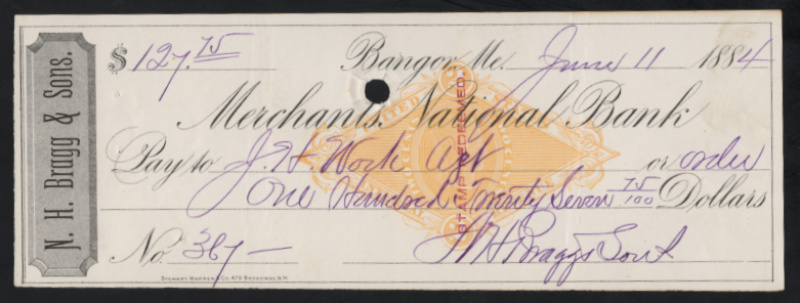 N. H. Bragg & Sons.
$127.75 Bangor, Me. June 11 1884
Merchants National Bank
Pay to J. H. Work Agt or order
One Hundred Twenty Seven 75/100 Dollars
STAMP REDEEMED.
No. 367 — N H Bragg & Sons
STEWART WARREN & CO. 470 BROADWAY N.Y.